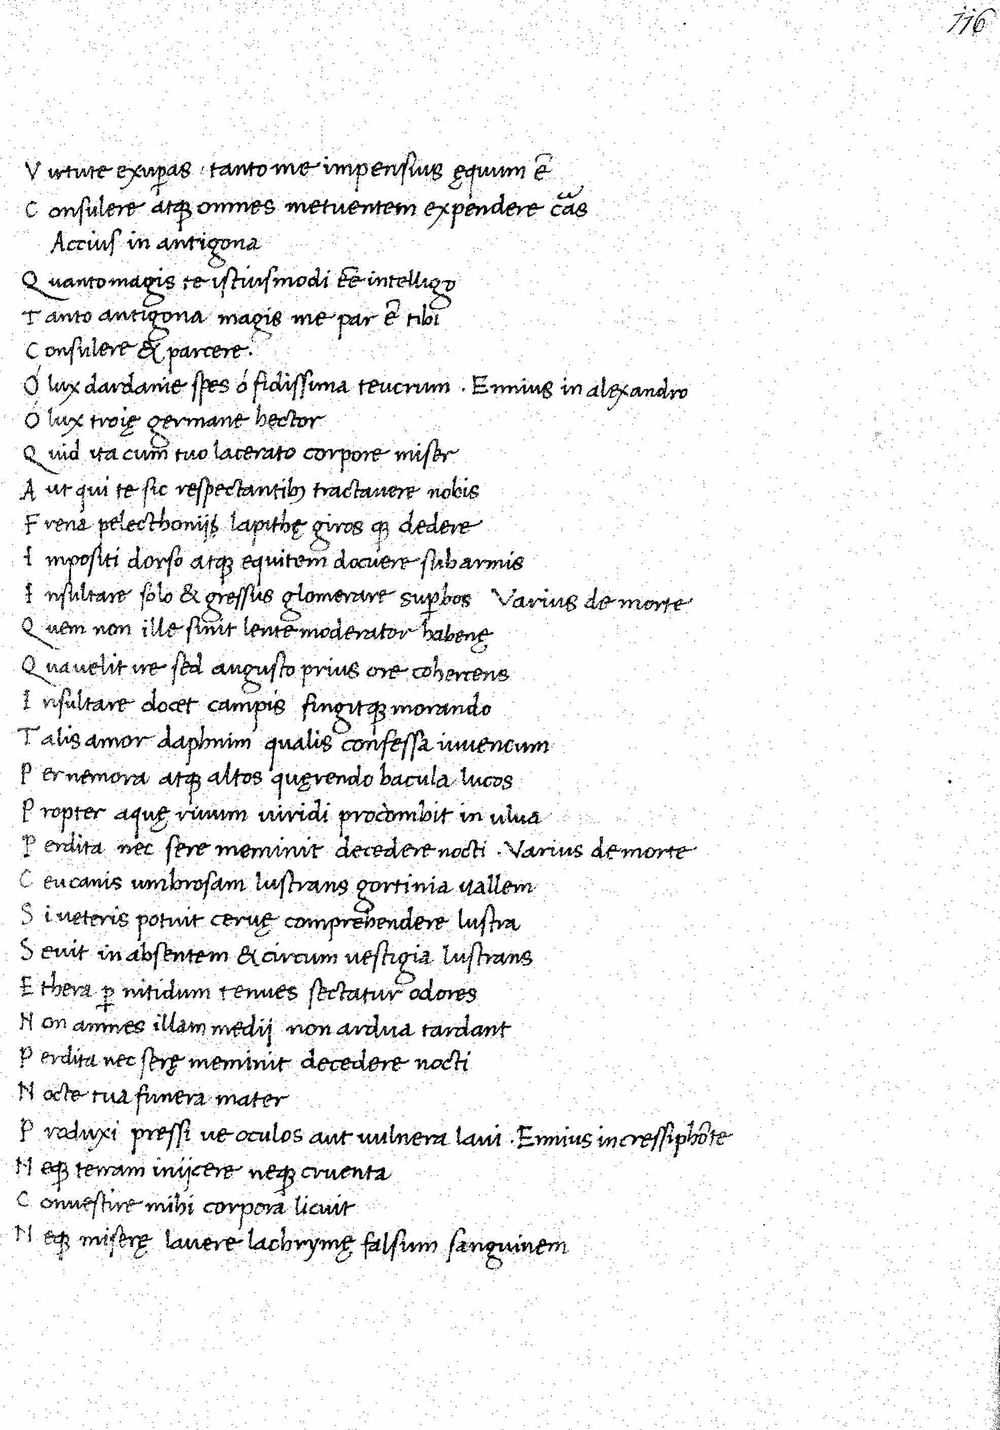 116
Virtute exuꝑas · tanto me impensius ęquum ē
Consulere atqꝫ omnes metuentem expendere cãs
Accius in antigona
Quanto magis te istiusmodi ēē intelligo
Tanto antigona magis me par ē tibi
Consulere & parcere.
Ó lux dardanie spes ó fidissima teucrum · Ennius in alexandro
Ó lux troię germane hector
Quid ita cum tuo lacerato corpore miser
Aut qui te sic respectantibꝫ tractauere nobis
Frena pelecthonijs lapithę giros qꝫ dedere
Impositi dorso atqꝫ equitem docuere sub armis
Insultare solo & gressus glomerare suꝑbos Varius de morte
Quem non ille sinit lente moderator habenę
Qua uelit ire sed augusto prius ore cohercens
Insultare docet campis fingitqꝫ morando
Talis amor daphnim qualis confessa iuuencum
Per nemora atqꝫ altos quęrendo bacula lucos
Propter aquę riuum uiridi procombit in ulua
Perdita nec sere meminit decedere nocti · Varius de morte
Ceu canis umbrosam lustrans gortinia uallem
Si ueteris potuit ceruę comprehendere lustra
Seuit in absentem & circum uestigia lustrans
Ethera ꝑ nitidum tenues sectatur odores
Non amnes illam medij non ardua tardant
Perdita nec serę meminit decedere nocti
Nocte tua funera mater
Produxi pressi ue oculos aut uulnera laui · Ennius in cressiphōte
Neqꝫ terram inijcere neqꝫ cruenta
Conuestire mihi corpora licuit
Neqꝫ miserę lauere lachrymę falsum sanguinem